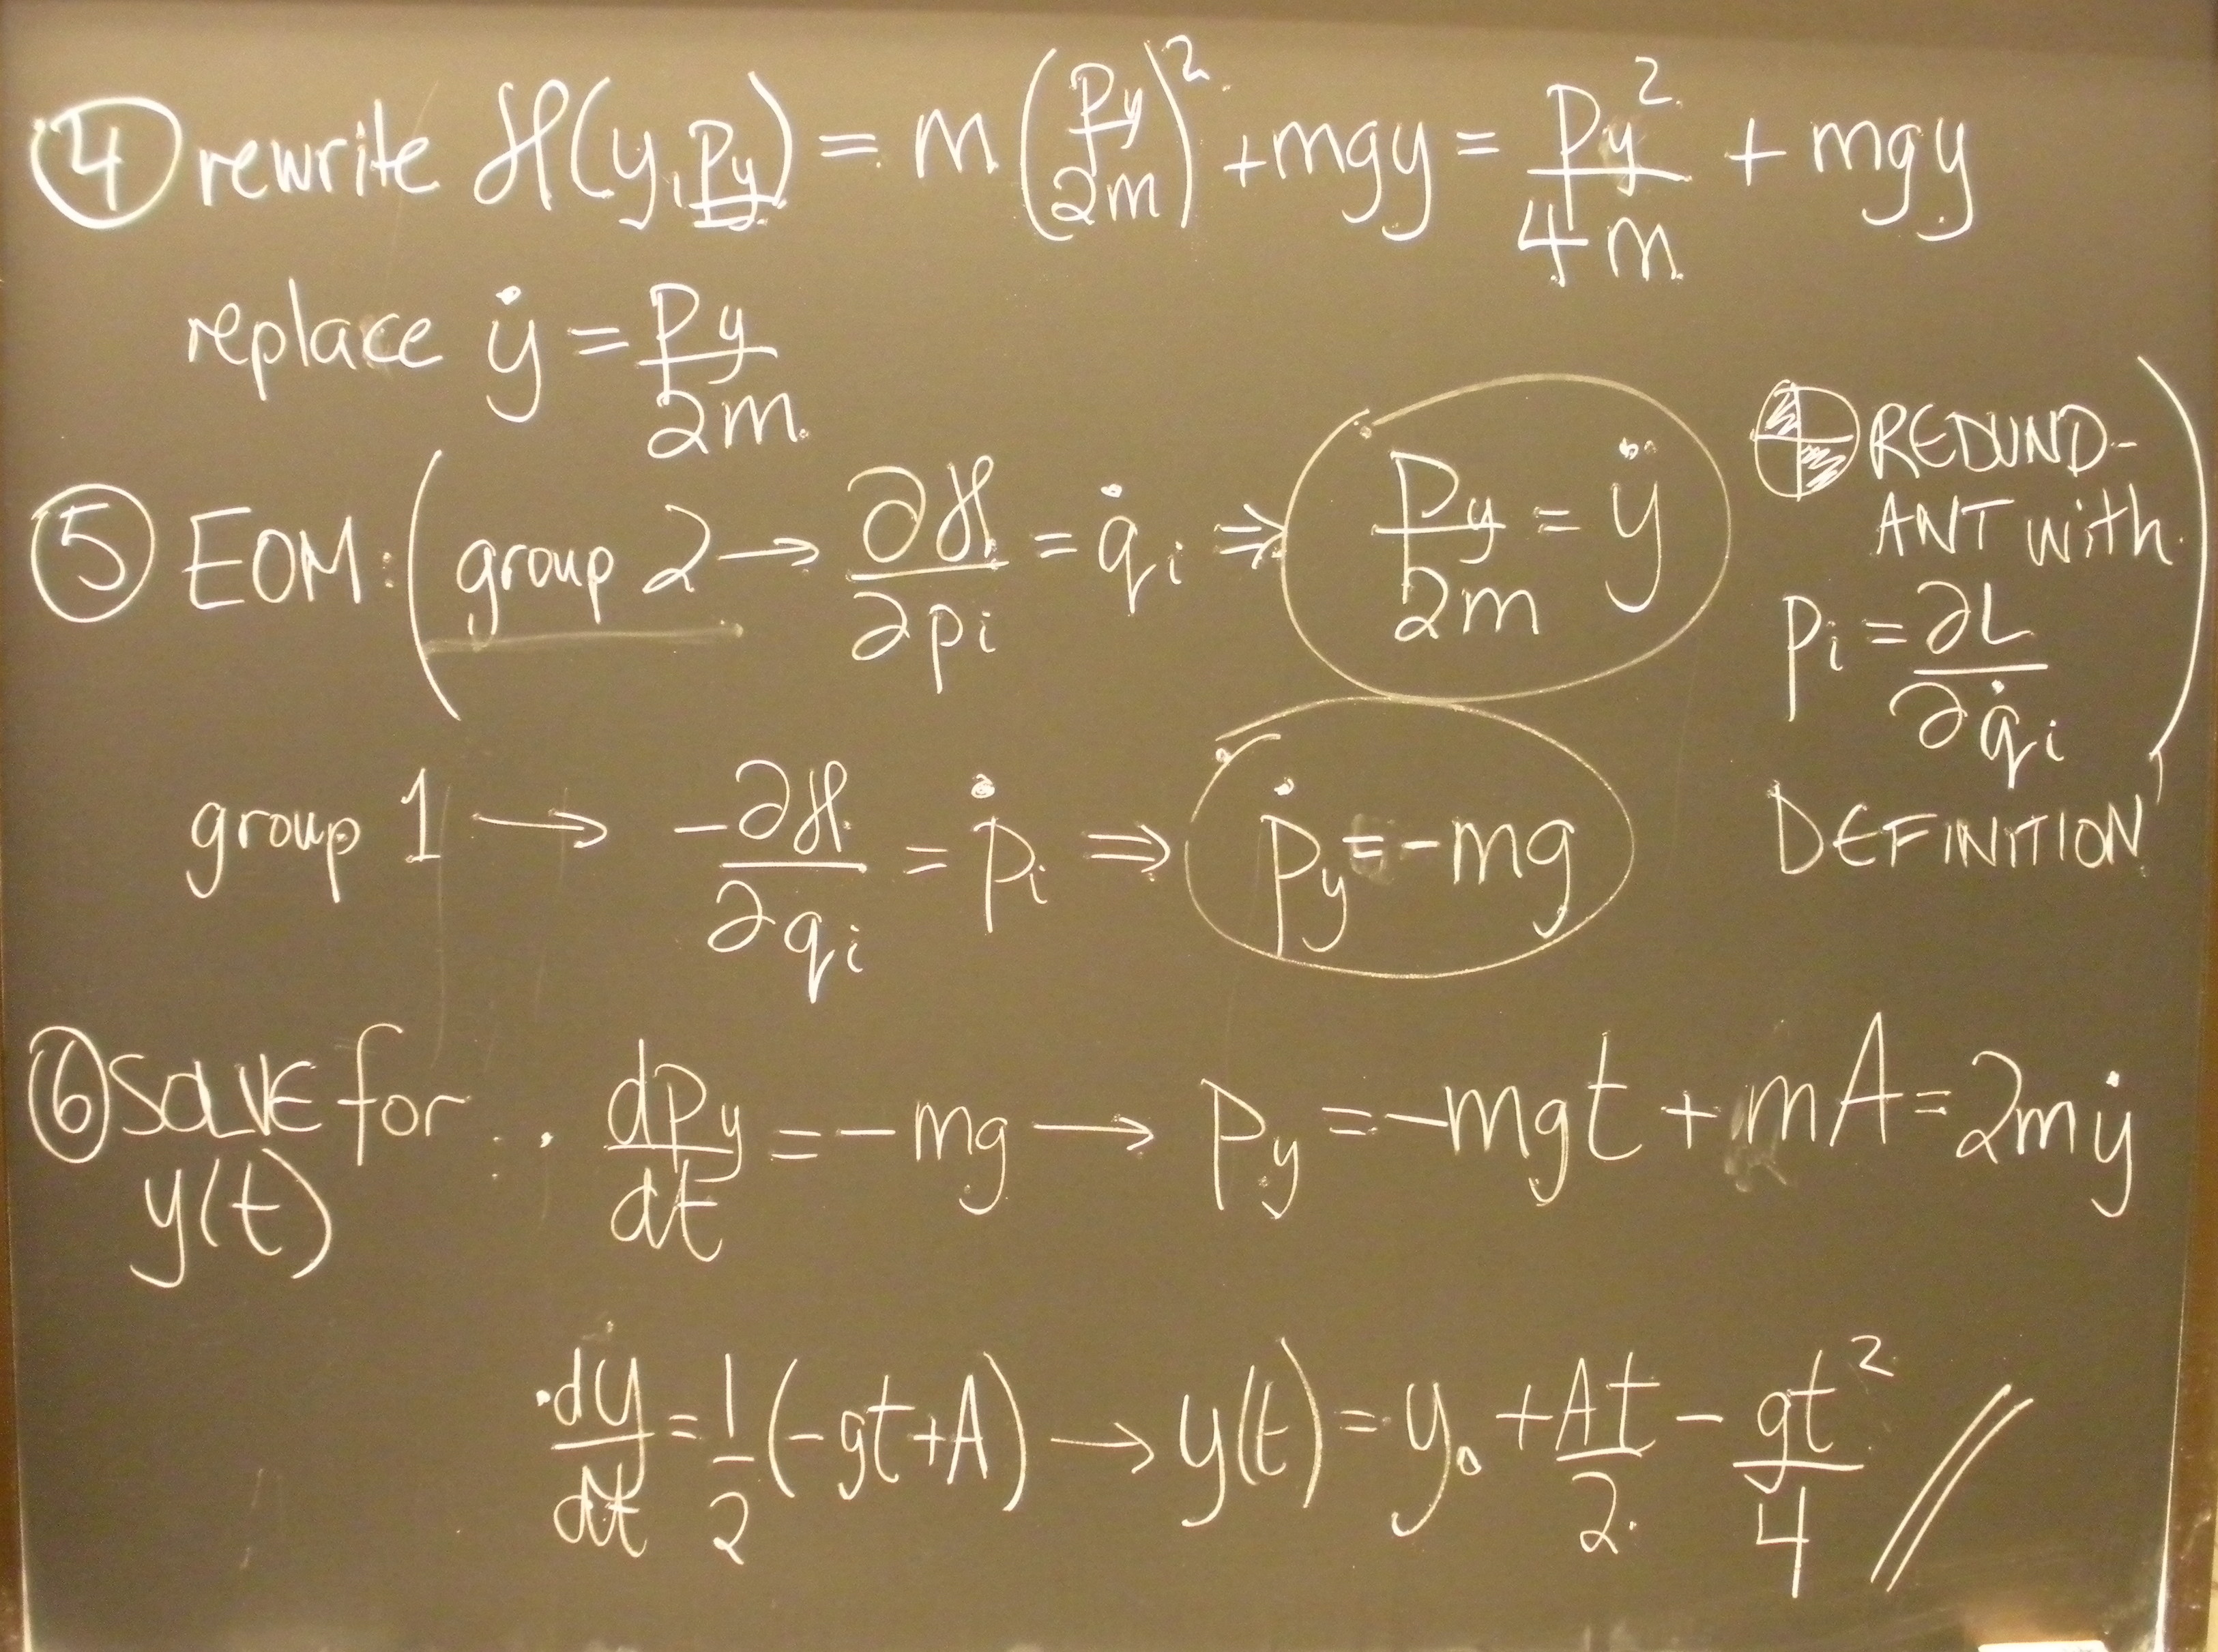 ④ rewrite ℋ(y, p_y) = m (p_y/2m)² + mgy = p_y²/4m + mgy
replace ẏ = p_y/2m
⑤ EOM: ( group 2 → ∂ℋ/∂p_i = q̇_i ⇒ p_y/2m = ẏ
REDUND-
ANT with
p_i = ∂L/∂q̇_i )
DEFINITION
group 1 → -∂ℋ/∂q_i = ṗ_i ⇒ ṗ_y = -mg
⑥ SOLVE for y(t) : dp_y/dt = -mg → p_y = -mgt + mA = 2mẏ
dy/dt = 1/2 (-gt+A) → y(t) = y₀ + At/2 - gt²/4 //